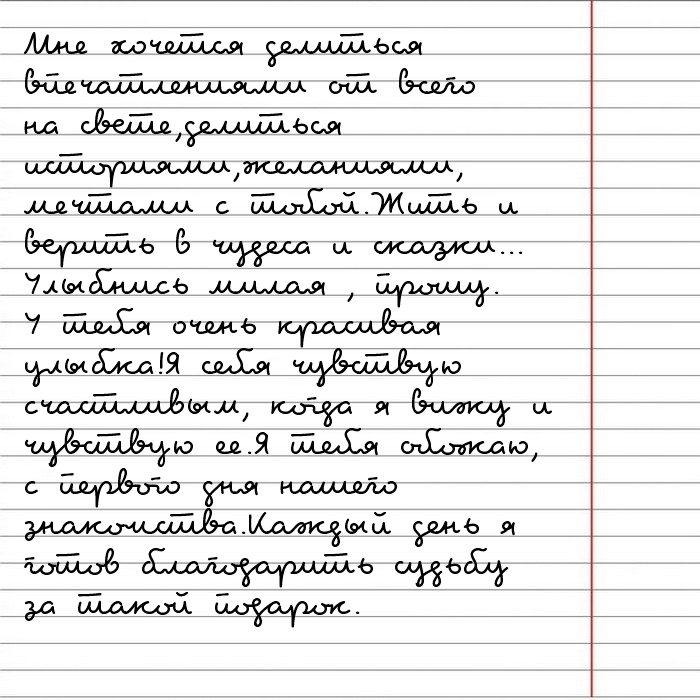 Мне хочется делиться
впечатлениями от всего
на свете,делиться
историями,желаниями,
мечтами с тобой.Жить и
верить в чудеса и сказки...
Улыбнись милая , прошу.
У тебя очень красивая
улыбка!Я себя чувствую
счастливым, когда я вижу и
чувствую ее.Я тебя обожаю,
с первого дня нашего
знакоиства.Каждый день я
готов благодарить судьбу
за такой подарок.